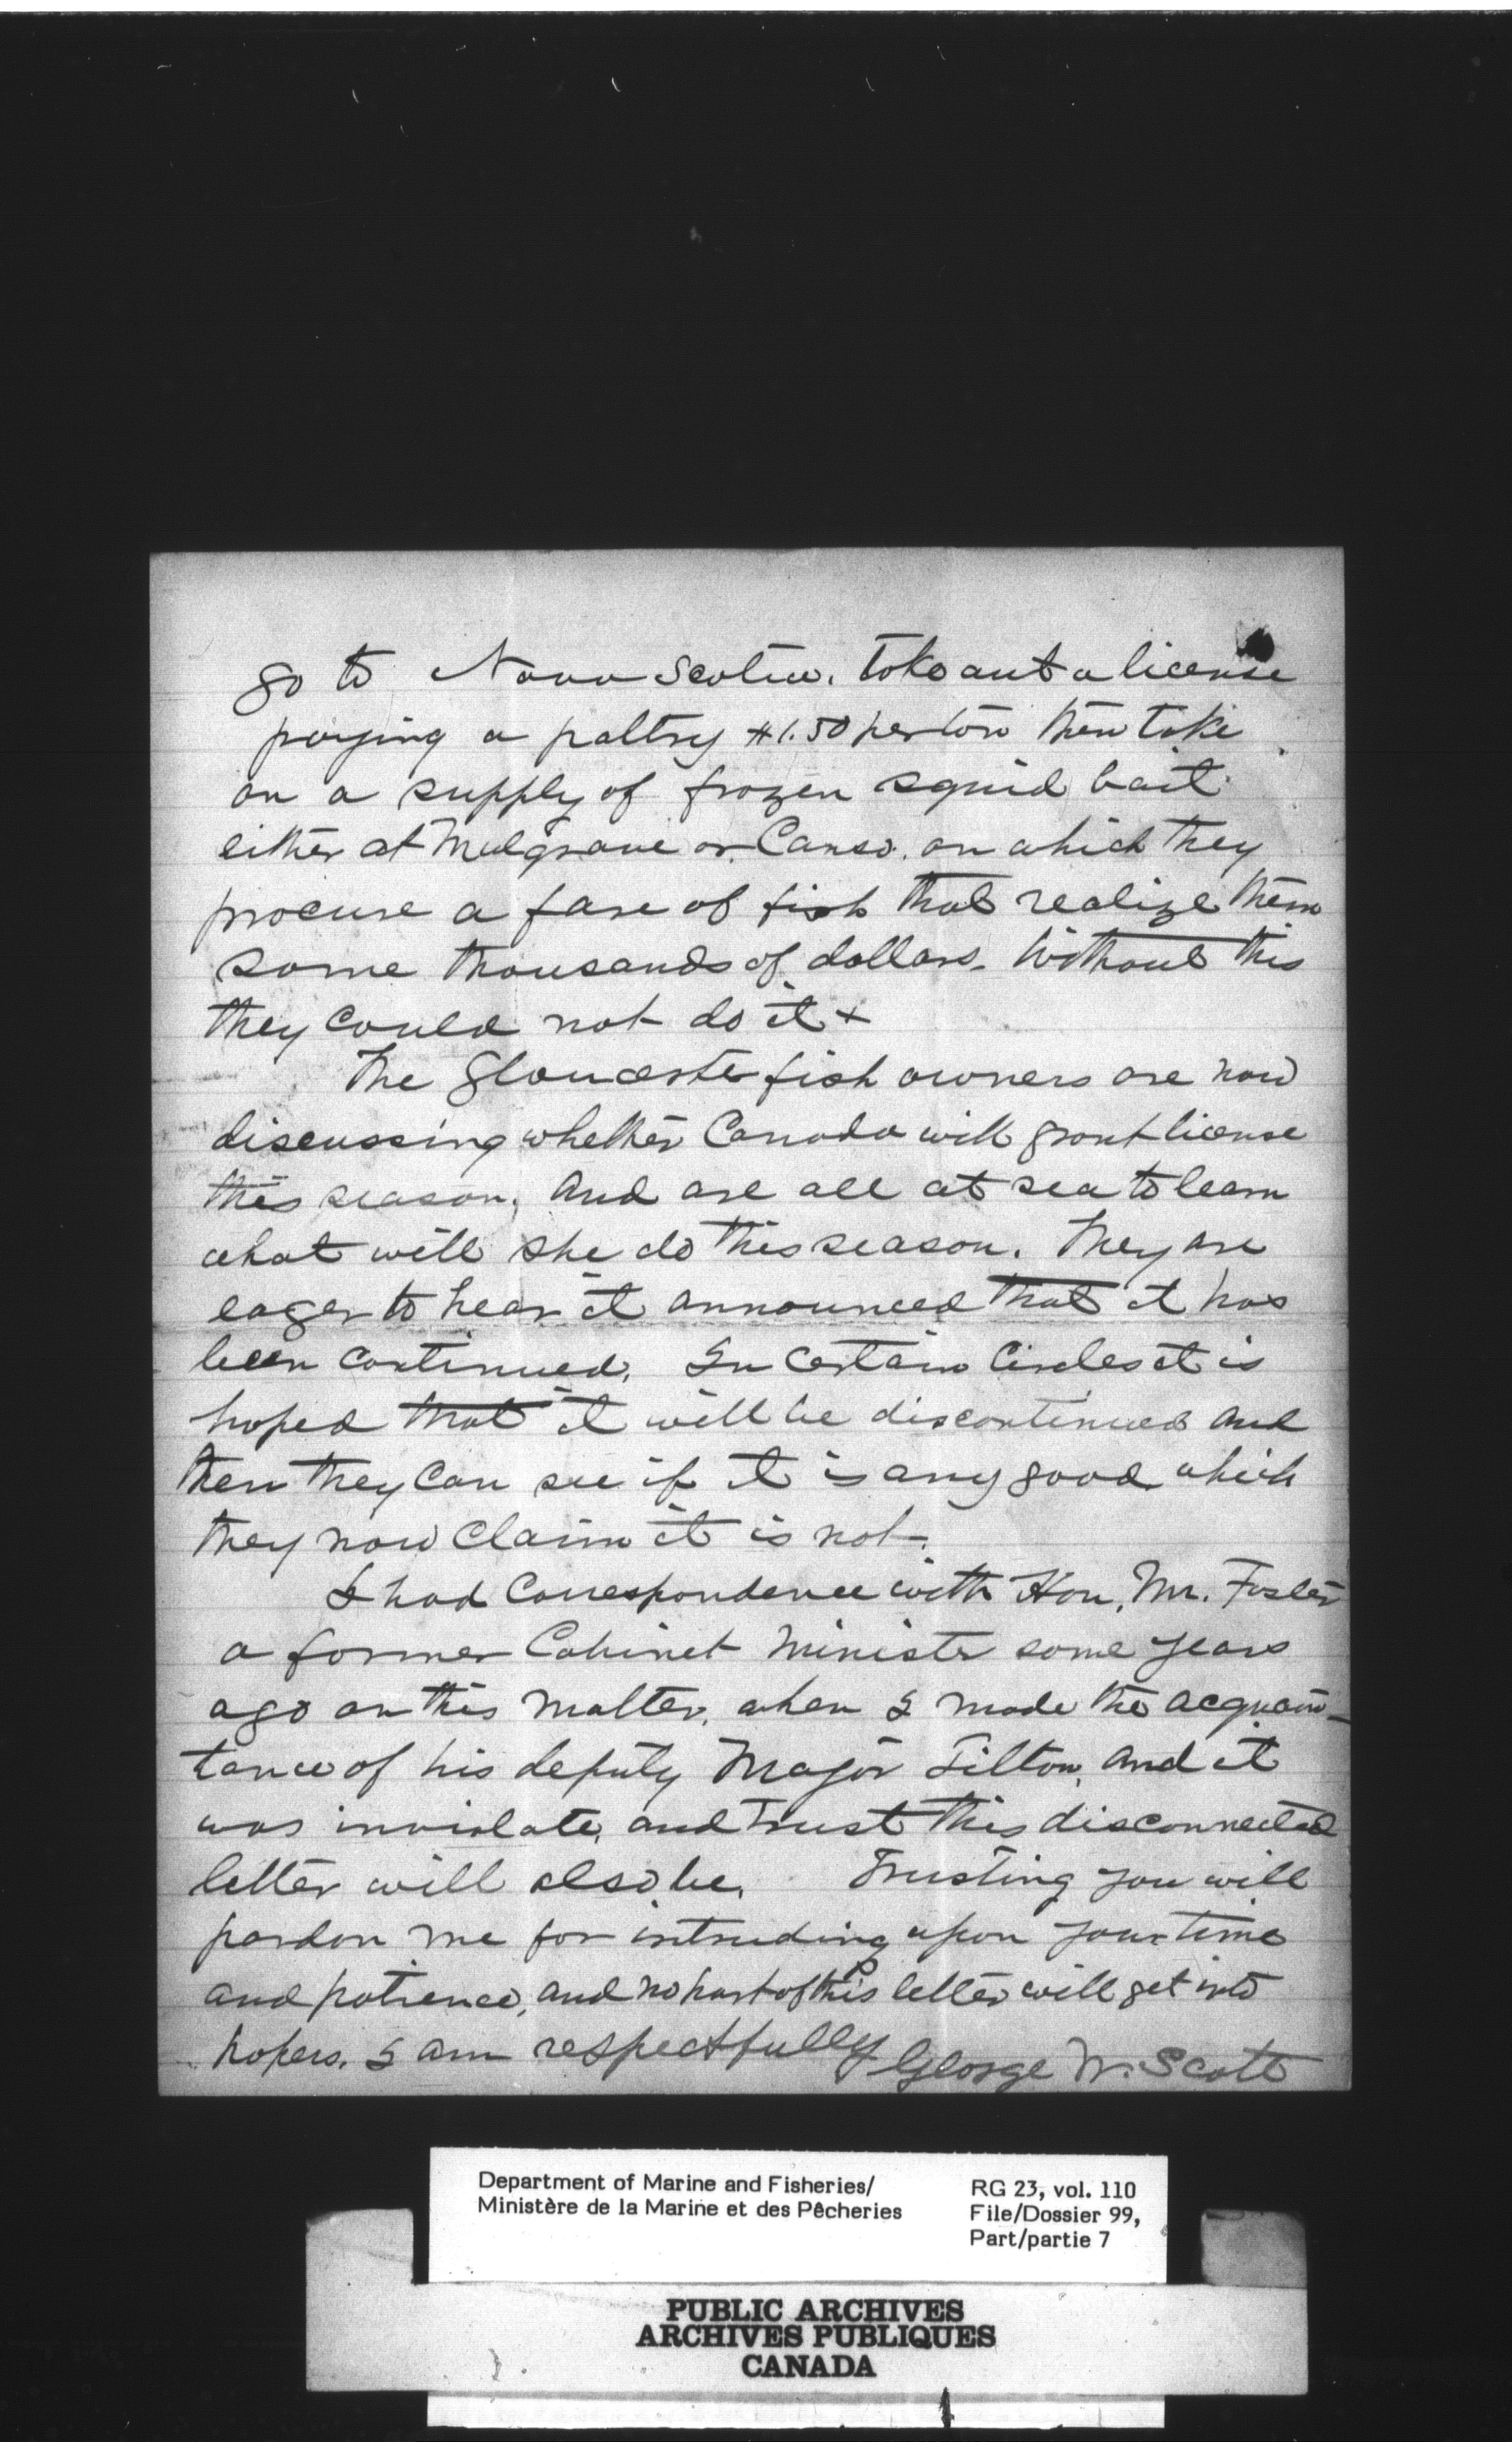 go to Nova Scotia. take out a license
paying a paltry $1.50 per ton then take
on a supply of frozen squid bait
either at Mulgrave or Canso. on which they
procure a fare of fish that realize them
some thousands of dollars. Without this
they could not do it +
The Gloucester fish owners are now
discussing whether Canada will grant license
this season, and are all at sea to learn
what will she do this season. They are
eager to hear it announced that it has
been continued. In certain circles it is
hoped that it will be discontinued and
then they can see if it is any good which
they now claim it is not.
I had correspondence with Hon. Mr. Foster
a former Cabinet Minister some years
ago on this matter, when I made the acquain-
tance of his deputy Major Tilton, and it
was inviolate, and trust this disconnected
letter will also be. Trusting you will
pardon me for intruding upon your time
and patience, and no part of this letter will get into
papers. I am respectfully George W. Scott
Department of Marine and Fisheries/
Ministère de la Marine et des Pêcheries
RG 23, vol. 110
File/Dossier 99,
Part/partie 7
PUBLIC ARCHIVES
ARCHIVES PUBLIQUES
CANADA